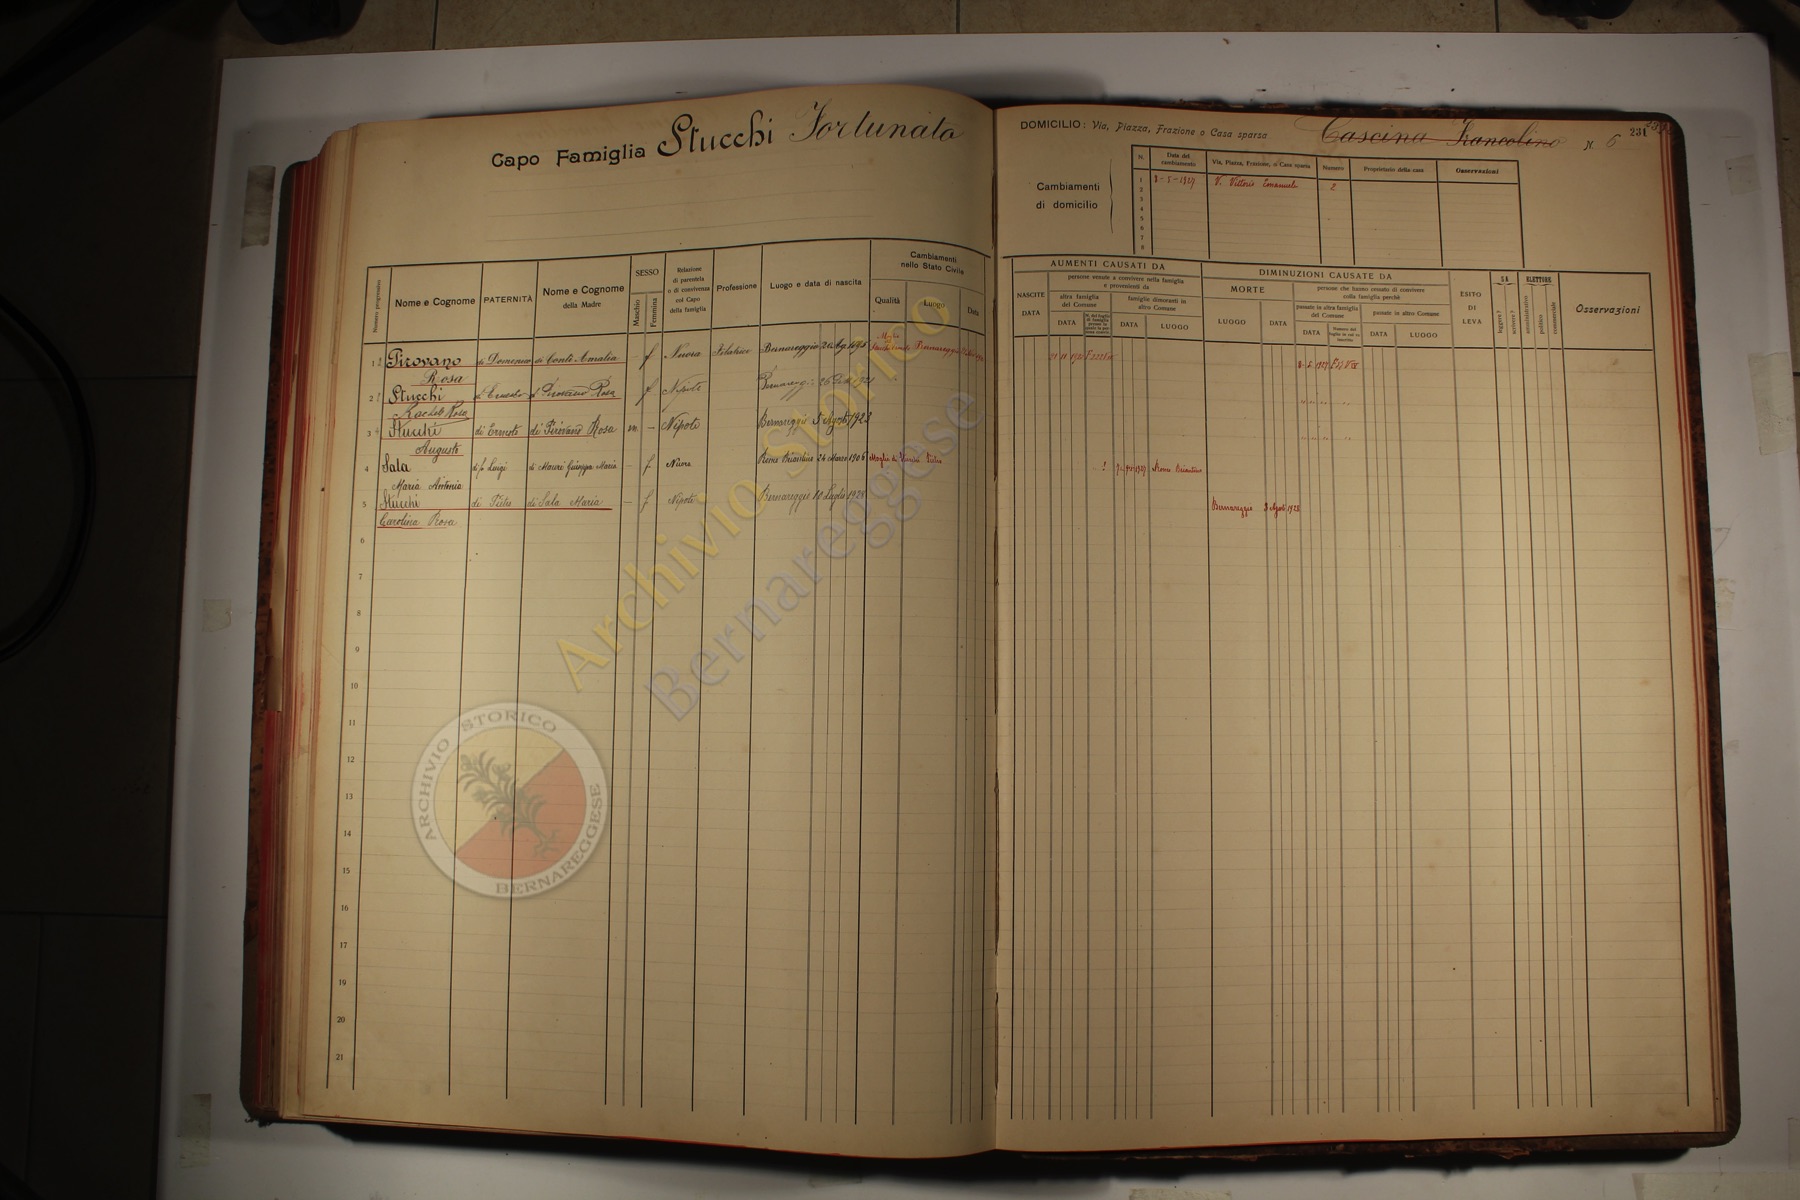 Capo Famiglia Stucchi Fortunato
Numero progressivo
Nome e Cognome
PATERNITÀ
Nome e Cognome
della Madre
SESSO
Maschio
Femmina
Relazione
di parentela
o di convivenza
col Capo
della famiglia
Professione
Luogo e data di nascita
Cambiamenti
nello Stato Civile
Qualità
Luogo
Data
1 Pirovano di Domenico di Conti Amalia f Nuora Bernareggio
Rosa
2 Stucchi di Ernesto di Pirovano Rosa f Nipote
Rosa
3 Stucchi di Ernesto di Pirovano Rosa m. - Nipote Bernareggio 5 Agosto 1923
Augusto
4 Sala di fu Luigi di Mauri Giuseppa Maria - f Nuora 24 Marzo 1906 Moglie di
Maria Antonia
5 Stucchi di Pietro di Sala Maria - f Nipote Bernareggio 10 Luglio 1928
Carolina Rosa
6
7
8
9
10
11
12
13
14
15
16
17
18
19
20
21
DOMICILIO: Via, Piazza, Frazione o Casa sparsa Cascina Francolino N. 6
231
Cambiamenti
di domicilio
N.
Data del
cambiamento
Via, Piazza, Frazione, o Casa sparsa
Numero
Proprietario della casa
Osservazioni
1 8-5-1927 V. Vittorio Emanuele 2
2
3
4
5
6
7
8
AUMENTI CAUSATI DA
NASCITE
DATA
persone venute a convivere nella famiglia
e provenienti da
altra famiglia
del Comune
DATA
famiglie dimoranti in
altro Comune
DATA
LUOGO
DIMINUZIONI CAUSATE DA
MORTE
LUOGO
DATA
persone che hanno cessato di convivere
colla famiglia perchè
passate in altra famiglia
del Comune
DATA
passate in altro Comune
DATA
LUOGO
ESITO
DI
LEVA
SA
leggere?
scrivere?
ELETTORE
amministrativo
politico
commerciale
Osservazioni
8-5-1927
Bernareggio 3 Agosto 1928
Archivio Storico
Bernareggese
ARCHIVIO STORICO
BERNAREGGESE